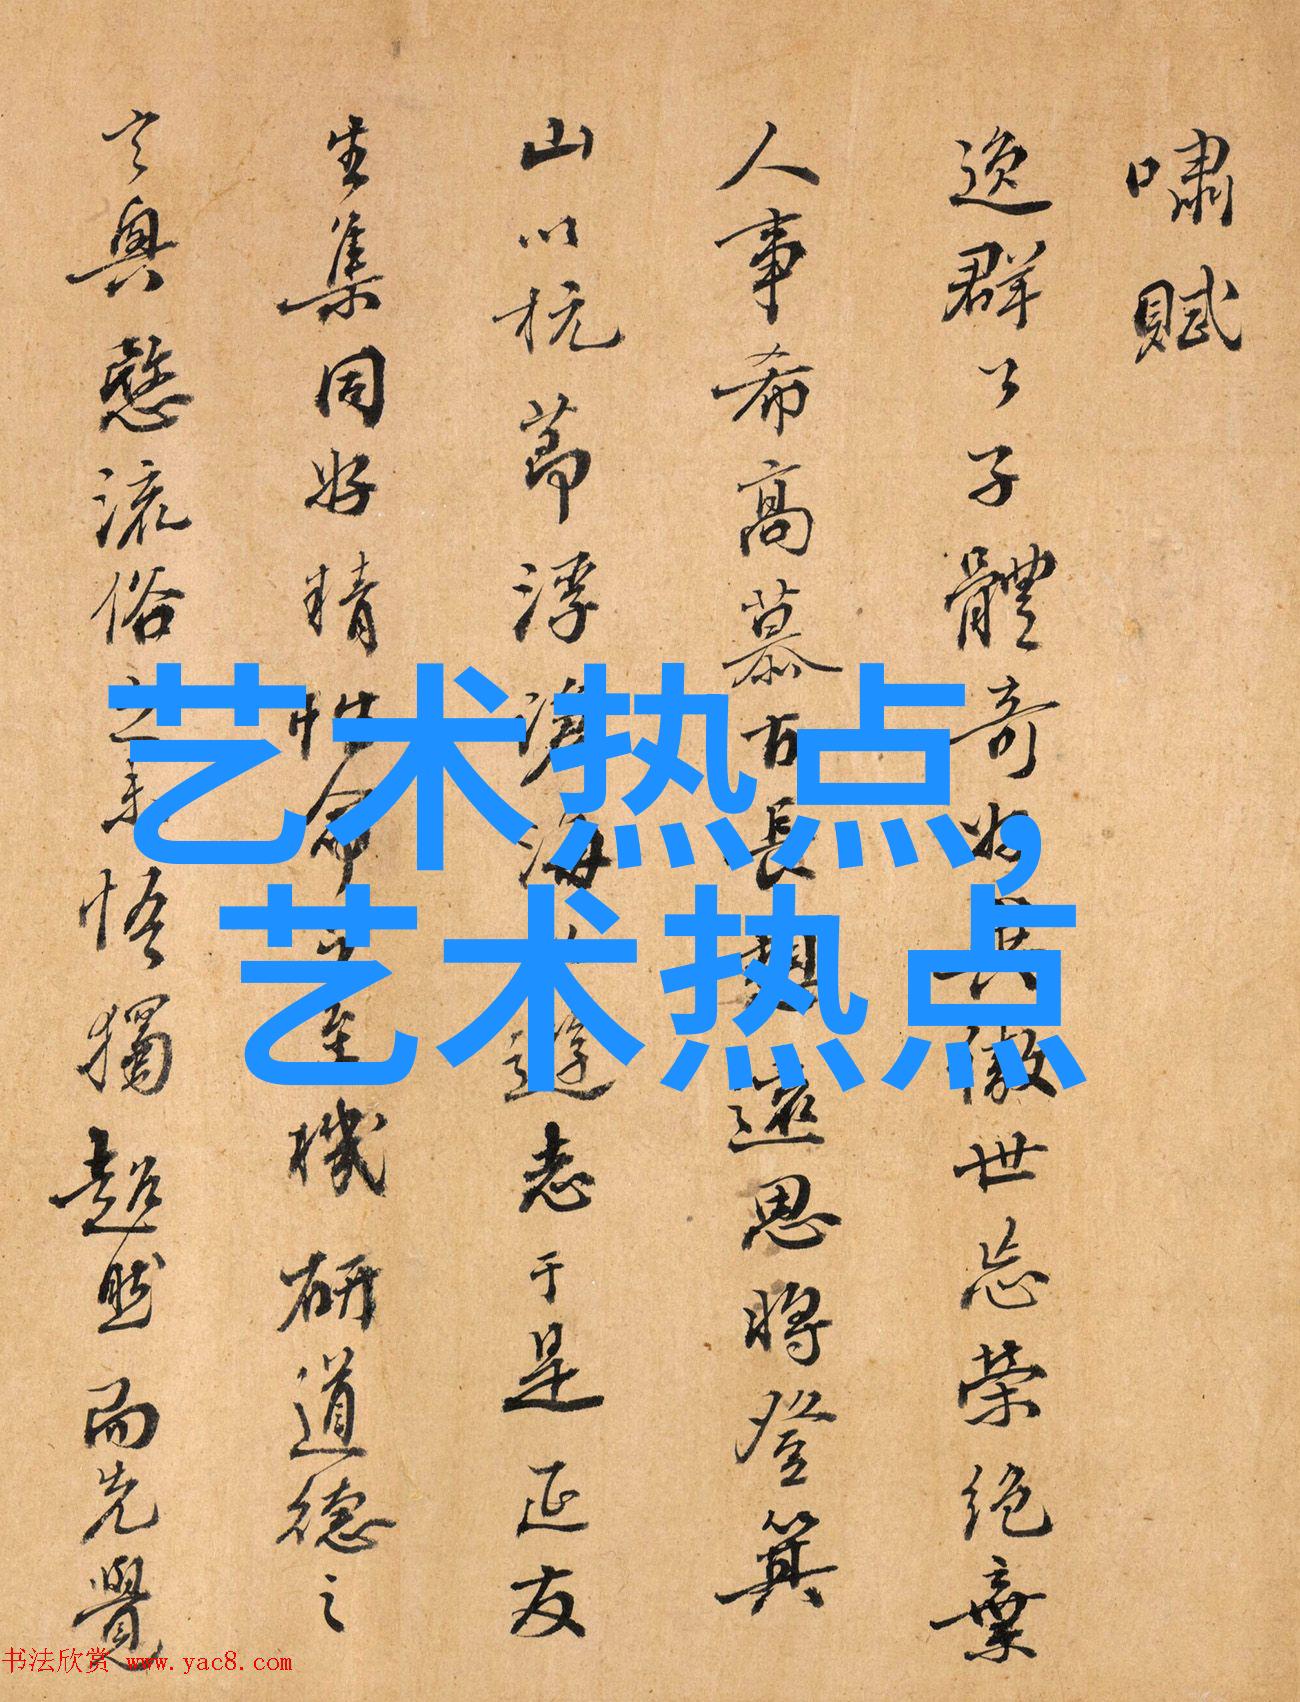 嘯賦
逸群公子體奇好異傲世忘榮絕棄
人事希高慕古長想遠思將登箕
山以抗節浮滄海以遊志于是延友
生集同好精性命之至機研道德之
玄奧愍流俗之未悟獨超然而先覺
艺术热点,
艺术热点
书法欣赏 www.yac8.com